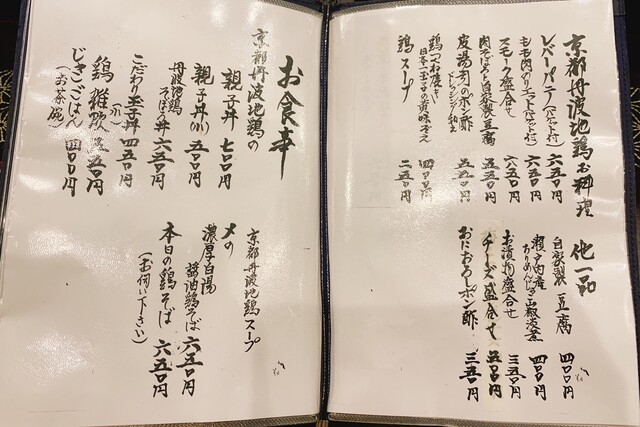 京都丹波地鶏お料理
レバーパテ(バケット付) 六五〇円
もも肉のリエット(バケット付) 六五〇円
スモーク盛合せ 六五〇円
肉そぼろと自家製豆腐 五五〇円
皮湯引のポン酢 五五〇円
ドレッシング和え
鶏つくね焼き 四〇〇円
日本一玉子の黄味ぞえ
鶏スープ 二五〇円
他一品
自家製豆腐 四〇〇円
瀬戸内産 四〇〇円
ちりめんじゃこ山椒淡煮
お漬物盛合せ 三五〇円
チーズ盛合せ 五〇〇円
おにおろしポン酢 三五〇円
お食事
京都丹波地鶏の
親子丼 七〇〇円
親子丼(小) 五五〇円
丹波地鶏
そぼろ丼 六五〇円
こだわり玉子丼 四五〇円
(小)
鶏雑炊 五五〇円
じきごはん 四〇〇円
(お茶碗)
京都丹波地鶏スープ
〆の
濃厚白湯
醤油鶏そば 六五〇円
本日の鶏そば 六五〇円
(お伺い下さい)